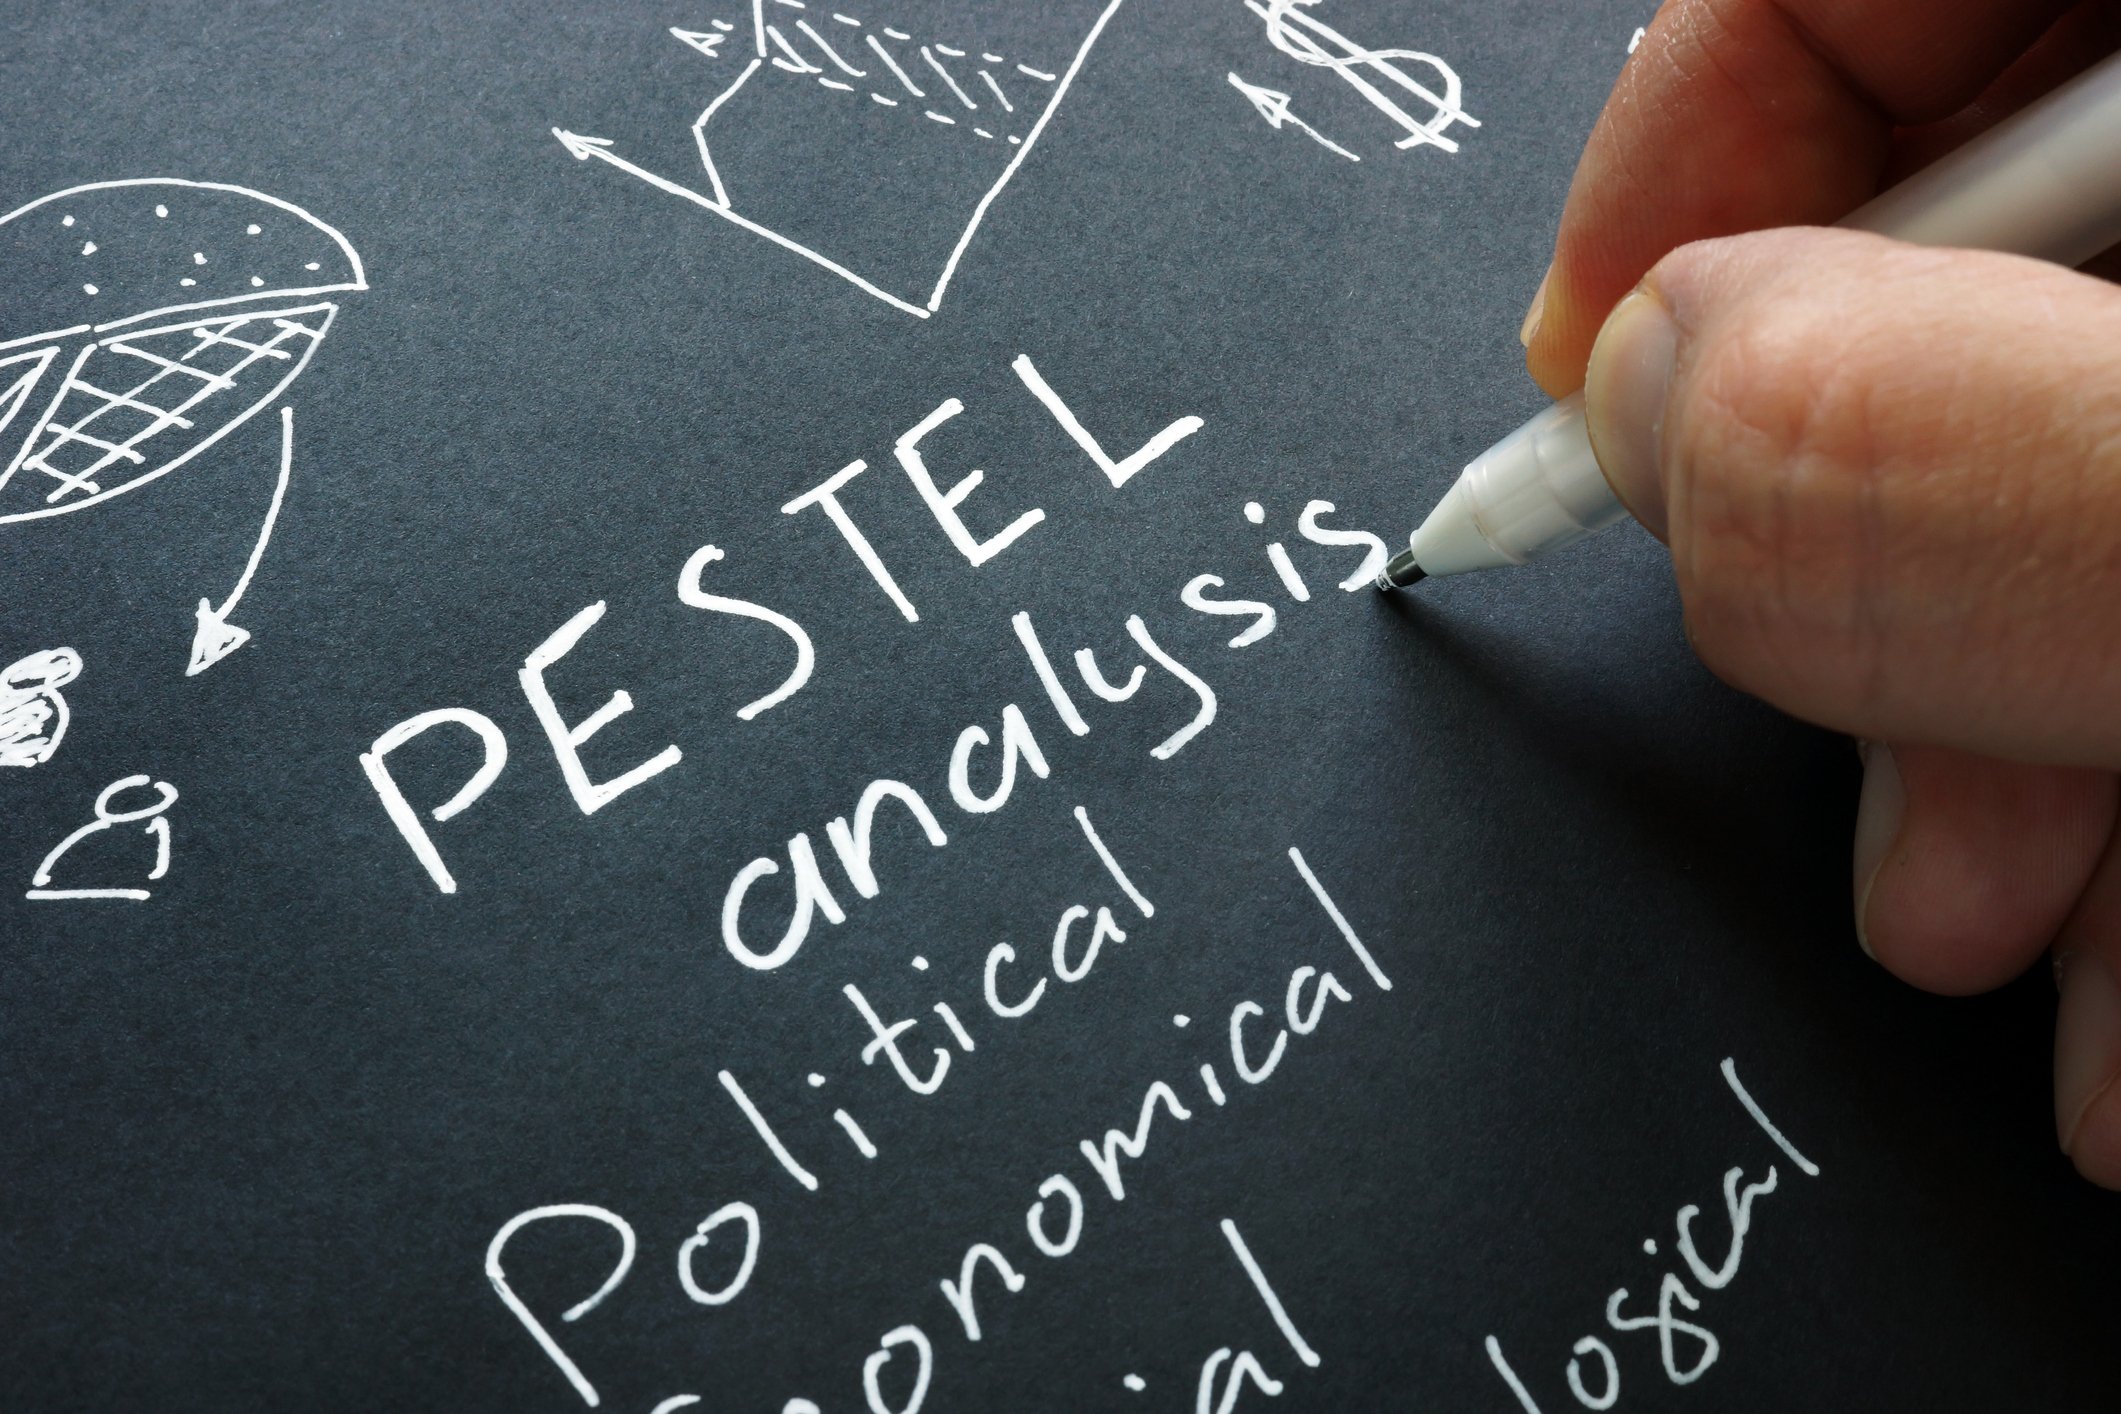 PESTEL
analysis
Political
Economical
ial
logical